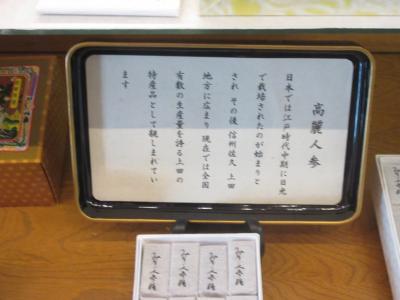 高麗人参
日本では江戸時代中期に日光
で栽培されたのが始まりと
され その後 信州佐久 上田
地方に広まり 現在では全国
有数の生産量を誇る上田の
特産品として親しまれてい
ます